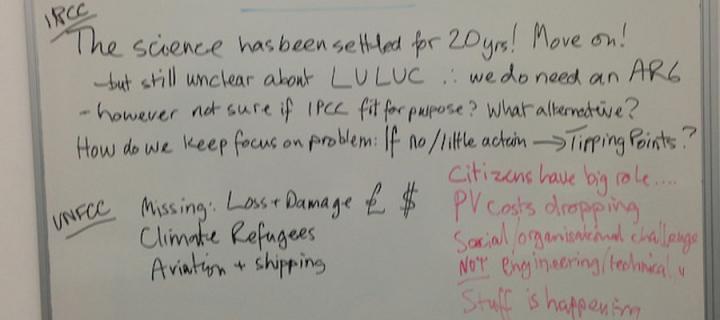 IPCC
The science has been settled for 20yrs! Move on!
- but still unclear about LULUC ∴ we do need an AR6
- however not sure if IPCC fit for purpose? What alternative?
How do we keep focus on problem: If no/little action → Tipping Points?
Citizens have big role....
PV costs dropping
Social/organisational challenge
NOT engineering/technical
Stuff is happening
UNFCC
Missing: Loss + Damage £ $
Climate Refugees
Aviation + shipping